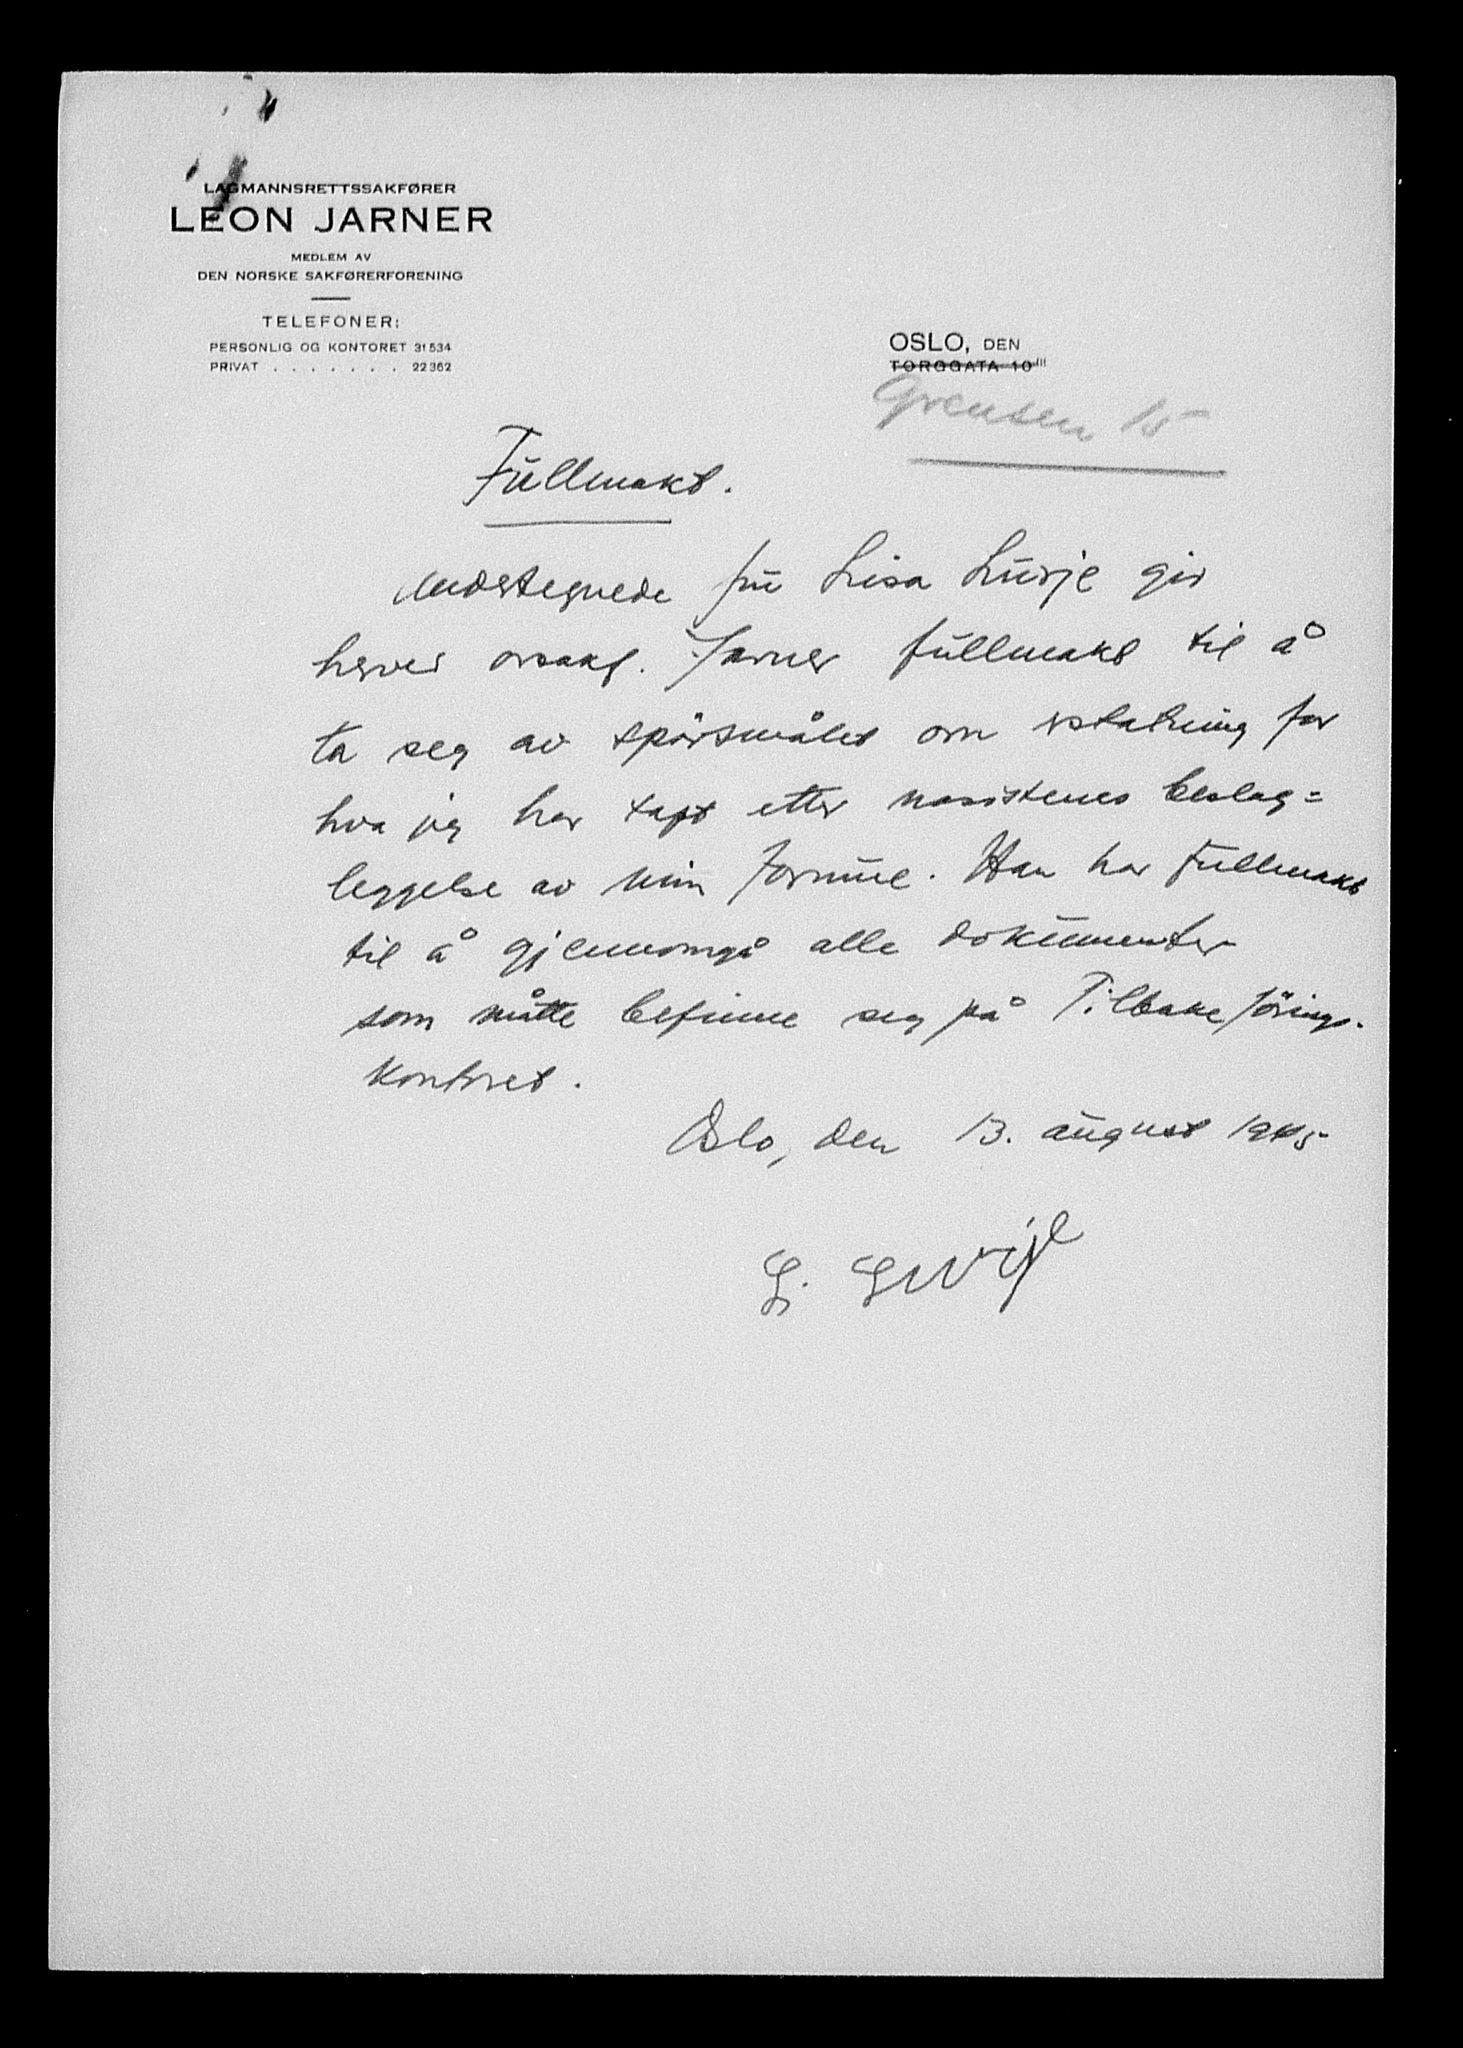 LAGMANNSRETTSSAKFØRER
LEON JARNER
MEDLEM AV
DEN NORSKE SAKFØRERFORENING
TELEFONER:
PERSONLIG OG KONTORET 31534
PRIVAT . . . . . . . 22362
OSLO, DEN
TORGGATA 10 III
Grensen 15
Fullmakt.
Undertegnede fru Lisa Lurje gir
herved orsakf. Jarner fullmakt til å
ta seg av spörsmålet om erstatning for
hva jeg har tapt etter nasistenes beslag=
leggelse av min formue. Han har fullmakt
til å gjennomgå alle dokumenter
som måtte befinne seg på Tilbakeförings-
kontoret.
Oslo, den 13. august 1945
L. Lurje